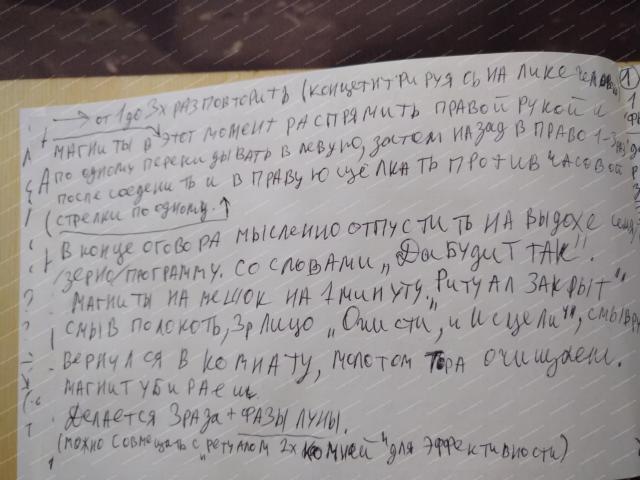 → от 1 до 3х раз повторить (концентрируясь на лике человека) 1
магниты в этот момент распрямить правой рукой и
по одному перекидывать в левую, затем назад в право 1-3
после соеденить и в правую щелкать против часовой
(стрелки по одному. ↑
+ В конце оговора мысленно отпустить на выдохе
зерно/программу. со словами „Да будит так".
магниты на мешок на 1 минуту. „Ритуал закрыт"
смыв по локоть, 3р лицо „Очисти, и исцели",
вернулся в комнату, молотом Тора очищаем.
магнит убираеш.
Делается 3 раза + фазы луны.
(можно совмещать с „ретуалом 2х комней" для эффективности)